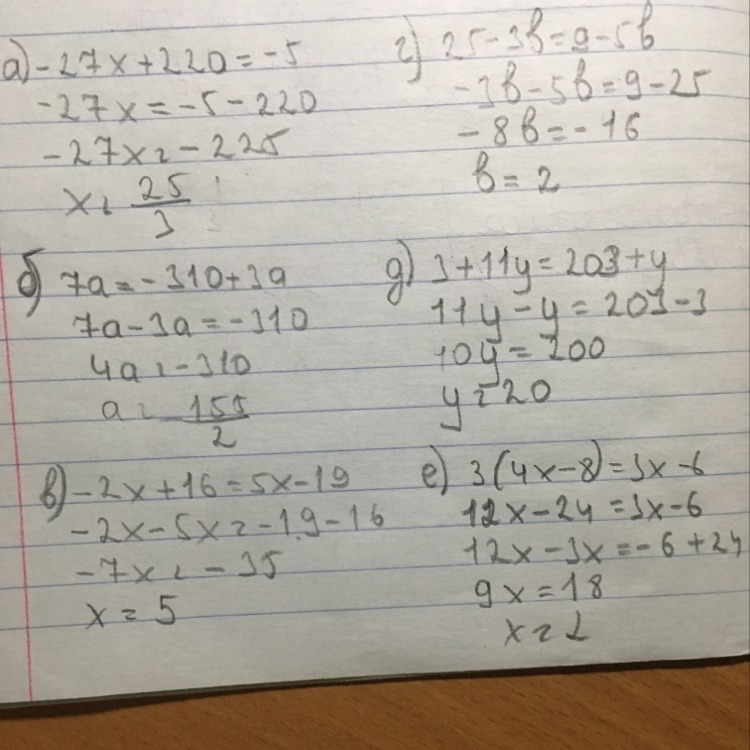 а) -27x+220=-5
-27x=-5-220
-27x=-225
x=25/3
б) 7a=-310+3a
7a-3a=-310
4a=-310
a=-155/2
в) -2x+16=5x-19
-2x-5x=-19-16
-7x=-35
x=5
г) 25-3b=9-5b
-3b-5b=9-25
-8b=-16
b=2
д) 3+11y=203+y
11y-y=203-3
10y=200
y=20
е) 3(4x-8)=3x-6
12x-24=3x-6
12x-3x=-6+24
9x=18
x=2